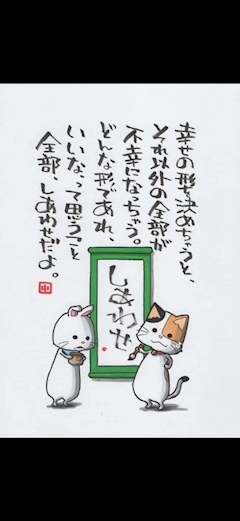 幸せの形を決めちゃうと、
それ以外の全部が
不幸になっちゃう。
どんな形であれ
いいな、って思うこと
全部、しあわせだよ。
しあわせ